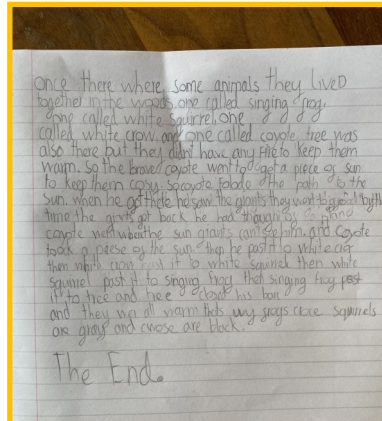 once there where some animals they lived
together in the woods. one called singing frog,
one called white squirrel, one
called white crow, and one called coyote, tree was
also there but they didn't have any fire to keep them
warm. So the brave coyote went to get a piece of sun
to keep them cosy. So coyote folode the path to the
sun. when he got there he saw the giants they went to
time the giants got back he had thought of a
coyote when the sun giants him. and coyote
took a paese of the sun. then he past it to white
then white crow past it to white squirrel then white
squirrel past it to singing frog then singing frog past
it to tree and tree closet his
and they wer all warm thats wuy frogs squirrels
are gray and are black.
The End.